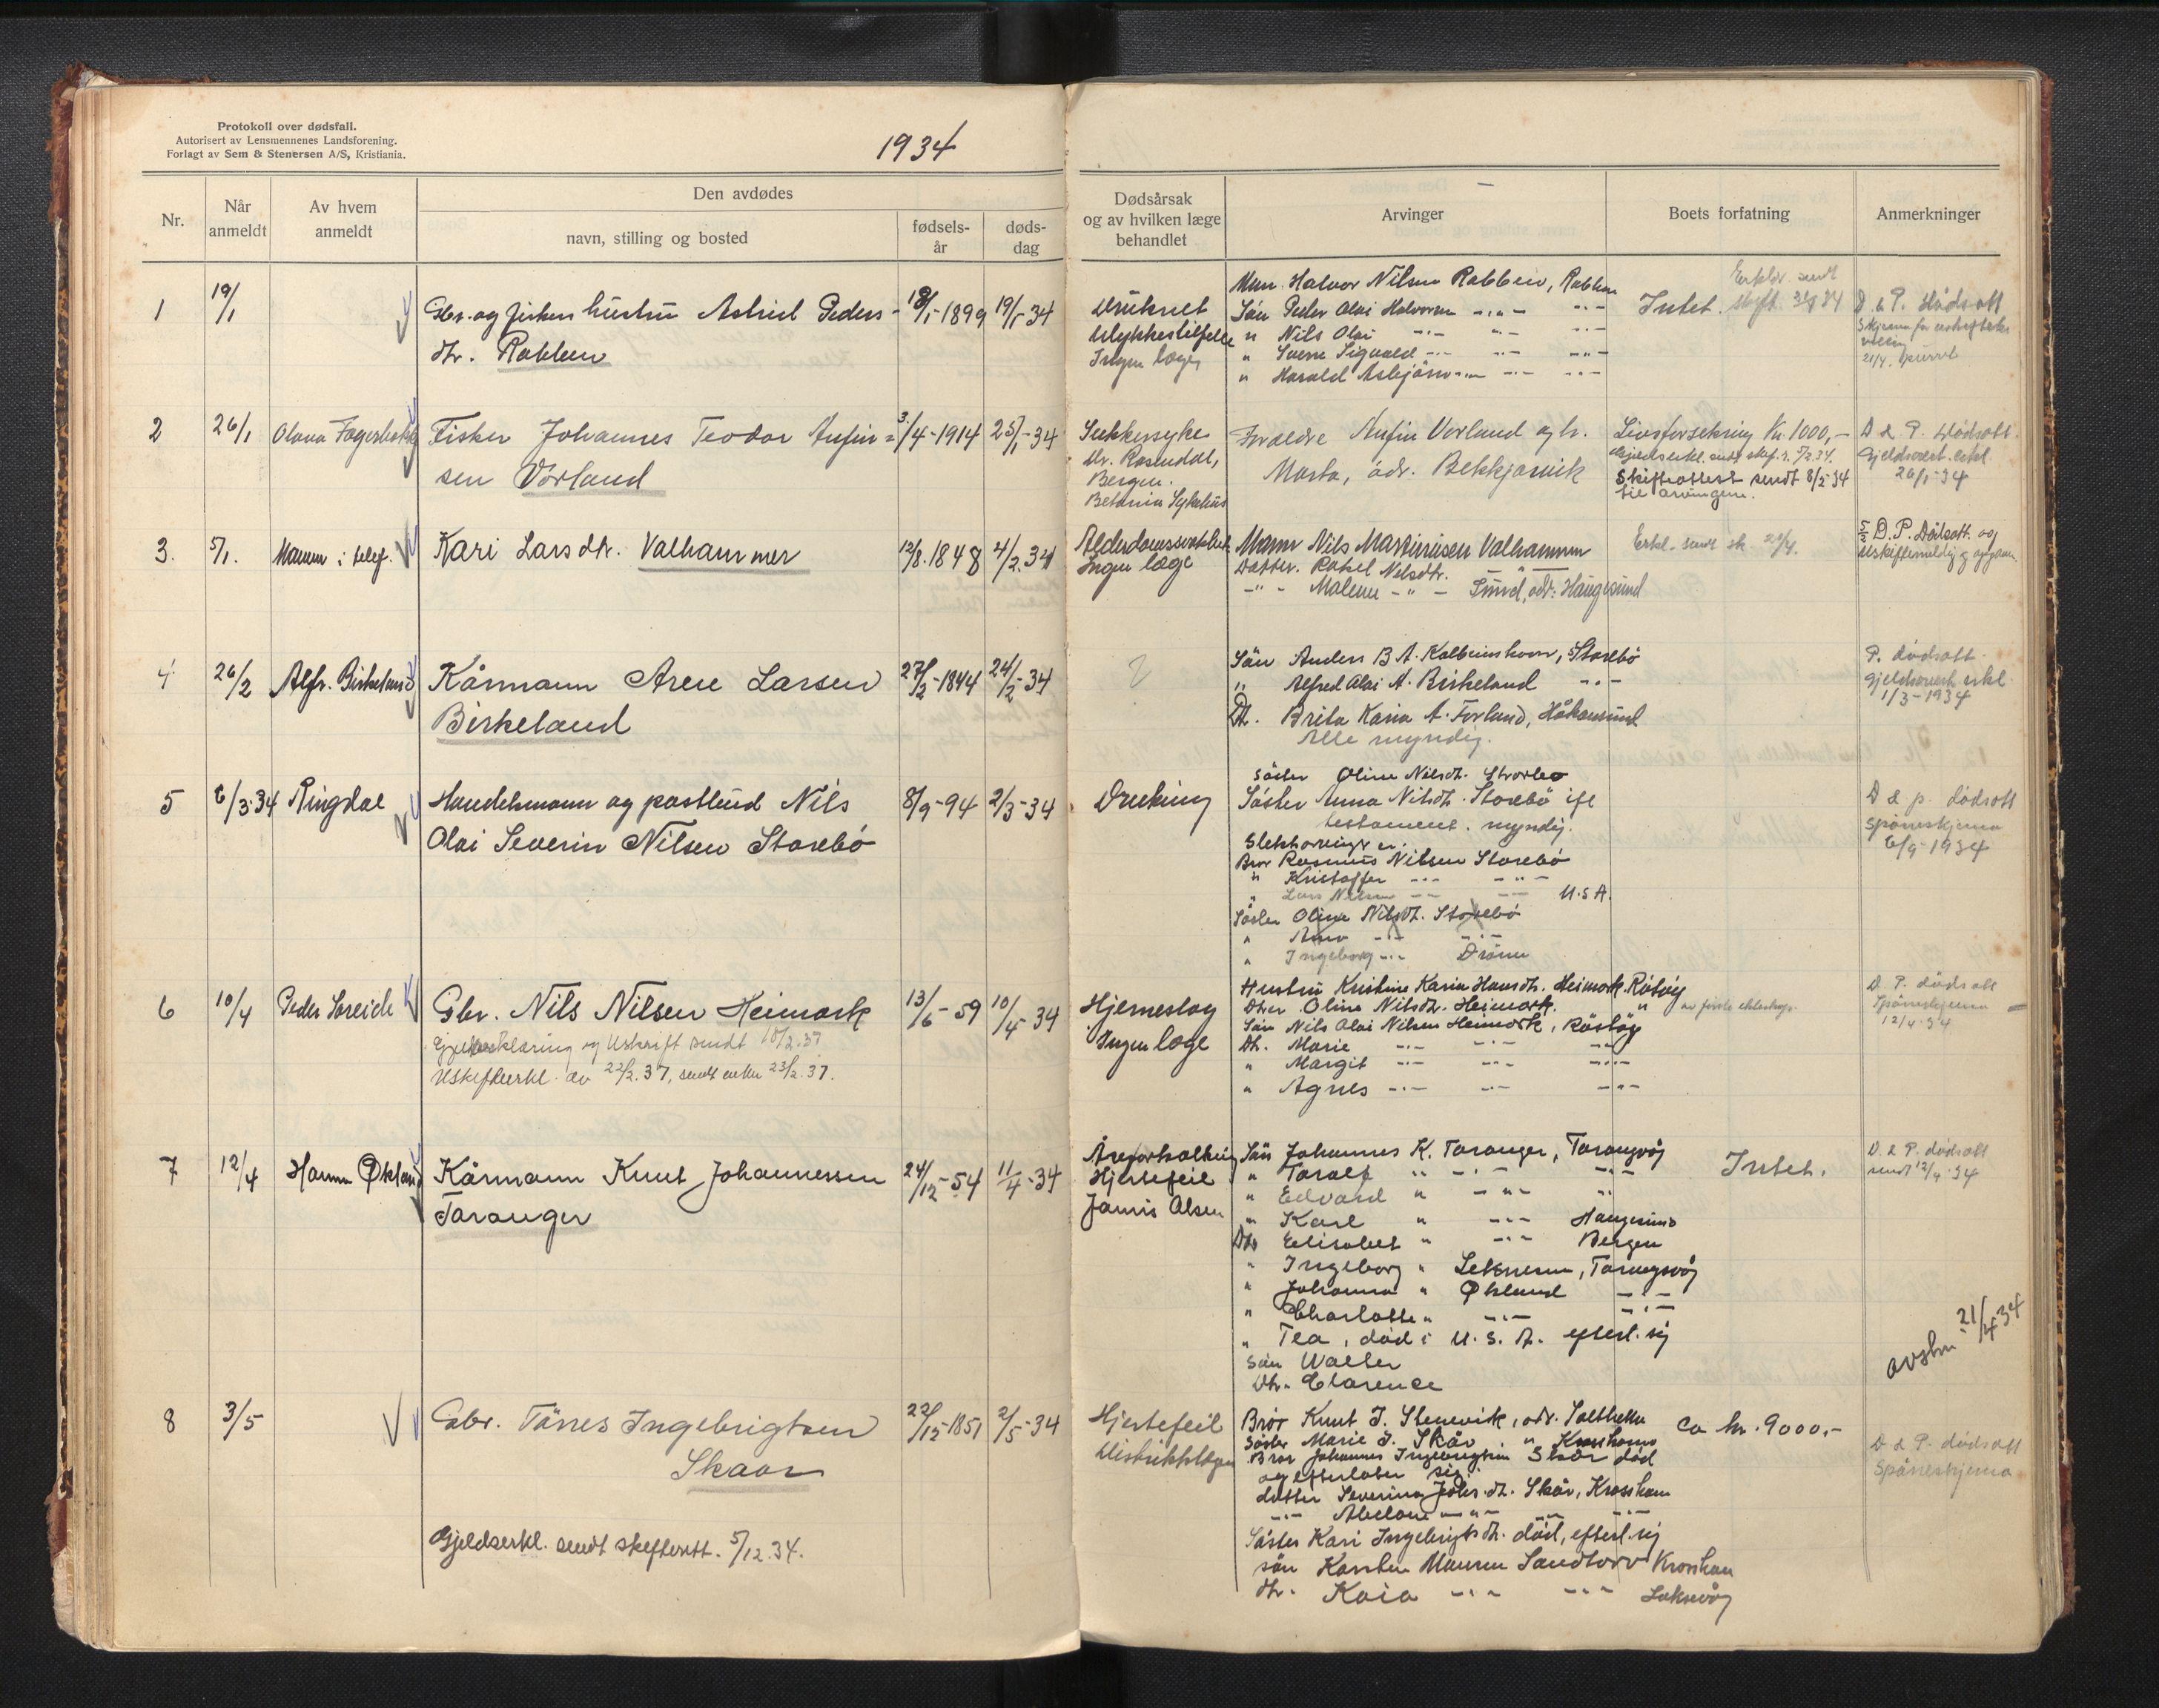 Protokoll over dødsfall.
Autorisert av Lensmennenes Landsforening.
Forlagt av Sem & Stenersen A/S, Kristiania.
1934
Nr.
Når anmeldt
Av hvem anmeldt
Den avdødes
navn, stilling og bosted
fødsels-år
døds-dag
Dødsårsak og av hvilken læge behandlet
Arvinger
Boets forfatning
Anmerkninger
1
19/1
Gbr. og fiskers hustru Astrid Peders-
dtr. Robben
1899
19/1-34
Druknet
Ulykkestilfelle
Ingen læge
Man Halvor Nilsen Robben, Robben
Sön Peder Olai Halvorsen -"- -"-
" Nils Olai -"- -"- -"-
" Sverre Sigvald -"- -"- -"-
" Harald Asbjörn -"- -"- -"-
Intet.
Erklær. sendt
D & P. dödsatt
21/4. purret
2
26/1
Olava Fagerbakke
Fisker Johannes Teodor Anfin=
sen Vorland
3/4-1914
25/1-34
Sukkersyke
Dr. Rosendal,
Bergen.
Betania Sykehus
Foreldre Anfin Vorland og h.
Marta, adr. Bekkjarvik
Livsforsekring Kr. 1000,-
Skifteattest sendt 8/2-34
til arvingene.
D & P. Dödsatt.
Gjeldsovert. erkl
26/1-34
3.
5/1.
Mannen i telef.
Kari Larsdtr. Valhammer
12/8.1848
4/2.34
Alderdomssvakhet
Ingen læge
Mann Nils Martinusen Valhammer
Datter. Rakel Nilsdtr. -"-
-"- Malene -"- Smid, adr: Haugesund
Erkl. sendt sk. 21/4.
5/2 D. P. Dödsatt. og
4
26/2
Alfr. Birkeland
Kårmann Arne Larsen
Birkeland
27/2-1844
24/2-34
?
Sön Anders B A. Kolbeinshavn, Storebö
" Alfred Olai A. Birkeland -"-
Dt. Brita Karia A. Forland, Håkansund
Alle myndig.
P. dödsatt.
Gjeldsovert. erkl.
1/3-1934
5
6/3-34
Ringdal
Handelsmann og postbud Nils
Olai Severin Nilsen Storebö
8/9-94
2/3-34
Drukning
Söster Oline Nilsdt. Storebö
Söster Anna Nilsdt. Storebö ifl
testament. myndig.
Slektsarvinger er.
Bror Rasmus Nilsen Storebö
" Kristoffer -"- -"-
" Lars Nilsen -"- -"- U.S.A.
Söster Oline Nilsdt. Storebö
" Anna -"- -"-
" Ingeborg -"- Drönen
D & p. dödsatt
Spörreskjema
6/9-1934
6
10/4
Peder Soreide
Gbr. Nils Nilsen Heimark
Gjeldserklæring og Uskrift sendt 10/2.37
Uskifteerkl. av 22/2.37, sendt enken 23/2.37.
13/6-59
10/4-34
Hjerneslag
Ingen læge
Hustru Kristine Karia Hansdt. Heimark. Rötöy
Dtr Oline Nilsdt. Heimark. " av förste ekteskap.
Sön Nils Olai Nilsen Heimark, Röstöy
Dt. Marie -"- -"- -"-
" Margit -"- -"- -"-
" Agnes -"- -"- -"-
D. P. dödsatt
Spörreskjema
12/4-34
7
12/4
Hanna Økland
Kårmann Knut Johannessen
Taranger
24/12-54
11/4-34
Åreforkalkning
Hjertefeil
Jannis Olsen
Sön Johannes K. Taranger, Tarangvåg
" Toralf " -"- -"-
" Edvard " -"- "
" Karl " -"- Haugesund
Dtr Elisabet " -"- Bergen
" Ingeborg " Leknesun, Tarangsvåg
" Johanna " Økland -"-
" Charlotte " -"- -"-
" Tea, död i U.S.A. efterl. sig
Sön Walter
Dtr. Clarence
Intet.
D & P. dödsatt
sendt 12/4-34
avslm 21/4 34
8
3/5
Gbr. Tönnes Ingebrigtsen
Skaar
Gjeldserkl. sendt skifterett. 5/12.34.
22/12-1851
2/5-34
Hjertefeil
Distriktslægen
Bror Knut I. Stenevik, adr. Salthella
Söster Marie I. Skår " Krossham
Bror Johannes Ingebrigtsen Skår död
og efterlater sig:
datter Severina Johs.dt. Skår, Krossham
-"- Abelone -"- -"- -"-
Söster Kari Ingebrigtsdt. död, efterl. sig
sön Karsten Monsen Sandtorv Krossham
dtr. Kaia -"- -"- Laksevåg
ca kr. 9000,-
D & P. dödsatt
Spörreskjema